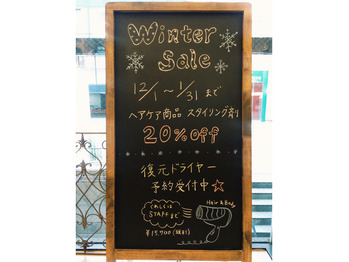 Winter
Sale
12/1～1/31まで
ヘアケア商品 スタイリング剤
20%off
復元ドライヤー
予約受付中☆
くわしくは
STAFFまで
Hair & Body
¥15,700(税別)